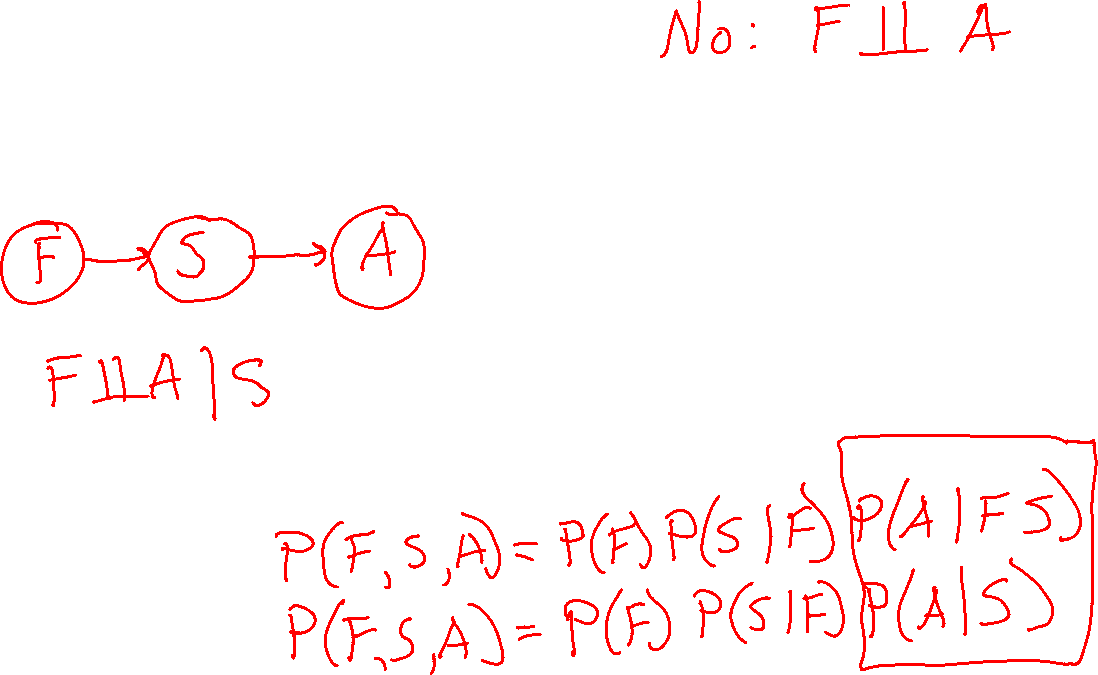 No: F ⫫ A
F S A
F⫫A|S
P(F,S,A)=P(F)P(S|F)P(A|FS)
P(F,S,A)=P(F)P(S|F)P(A|S)